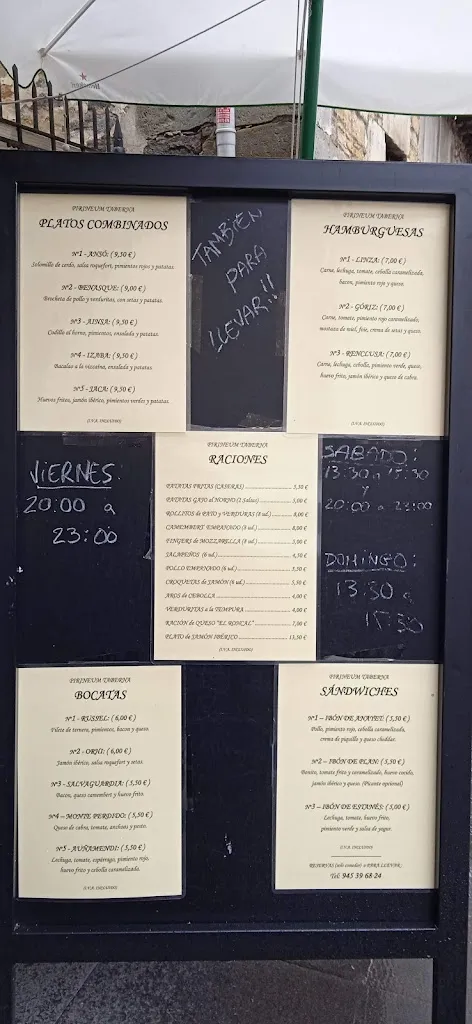 PIRINEUM TABERNA
PLATOS COMBINADOS
Nº1 - ANSÓ: ( 9,50 € )
Solomillo de cerdo, salsa roquefort, pimientos rojos y patatas.
Nº2 – BENASQUE: ( 9,00 € )
Brocheta de pollo y verduritas, con setas y patatas.
Nº3 - AINSA: ( 9,50 € )
Codillo al horno, pimientos, ensalada y patatas.
Nº4 – IZABA: ( 9,50 € )
Bacalao a la vizcaína, ensalada y patatas.
Nº5 - JACA: ( 9,50 € )
Huevos fritos, jamón ibérico, pimientos verdes y patatas.
(I.V.A. INCLUIDO)
TAMBIEN
PARA
LLEVAR!!
PIRINEUM TABERNA
HAMBURGUESAS
Nº1 - LINZA: ( 7,00 € )
Carne, lechuga, tomate, cebolla caramelizada,
bacon, pimiento rojo y queso.
Nº2- GÓRIZ: ( 7,00 € )
Carne, tomate, pimiento rojo caramelizado,
mostaza de miel, foie, crema de setas y queso.
Nº3 - RENCLUSA: ( 7,00 € )
Carne, lechuga, cebolla, pimiento verde, queso,
huevo frito, jamón ibérico y queso de cabra.
(I.V.A. INCLUIDO)
VIERNES:
20:00 a
23:00
PIRINEUM TABERNA
RACIONES
PATATAS FRITAS (CASERAS) 3,50 €
PATATAS GAJO al HORNO (2 Salsas) 5,00 €
ROLLITOS de PATO y VERDURAS (8 ud.) 8,00 €
CAMEMBERT EMPANADO (8 ud.) 8,00 €
FINGERS de MOZZARELLA (8 ud.) 5,00 €
JALAPEÑOS (6 ud.) 4,50 €
POLLO EMPANADO (6 ud.) 5,50 €
CROQUETAS de JAMÓN (6 ud.) 5,50 €
AROS de CEBOLLA 4,00 €
VERDURITAS a la TEMPURA 4,00 €
RACIÓN de QUESO "EL RONCAL" 7,00 €
PLATO de JAMÓN IBÉRICO 13,50 €
(I.V.A. INCLUIDO)
SABADO:
13:30 a 15:30
y
20:00 a 23:00
DOMINGO:
13:30 a
15:30
PIRINEUM TABERNA
BOCATAS
Nº1 - RUSSEL: ( 6,00 € )
Filete de ternera, pimientos, bacon y queso.
Nº2 - ORHI: ( 6,00 € )
Jamón ibérico, salsa roquefort y setas.
Nº3 - SALVAGUARDIA: ( 5,50 € )
Bacon, queso camembert y huevo frito.
Nº4– MONTE PERDIDO: ( 5,50 € )
Queso de cabra, tomate, anchoas y pesto.
Nº5 - AUÑAMENDI: ( 5,50 € )
Lechuga, tomate, espárrago, pimiento rojo,
huevo frito y cebolla caramelizada.
(I.V.A. INCLUIDO)
PIRINEUM TABERNA
SÁNDWICHES
Nº1 – IBÓN DE ANAYET: ( 5,50 € )
Pollo, pimiento rojo, cebolla caramelizada,
crema de piquillo y queso cheddar.
Nº2 – IBÓN DE PLAN: ( 5,50 € )
Bonito, tomate frito y caramelizado, huevo cocido,
jamón ibérico y queso. (Picante opcional)
Nº3 – IBÓN DE ESTANÉS: ( 5,00 € )
Lechuga, tomate, huevo frito,
pimiento verde y salsa de yogur.
(I.V.A. INCLUIDO)
RESERVAS (sólo comedor) o PARA LLEVAR:
Tel: 945 39 68 24